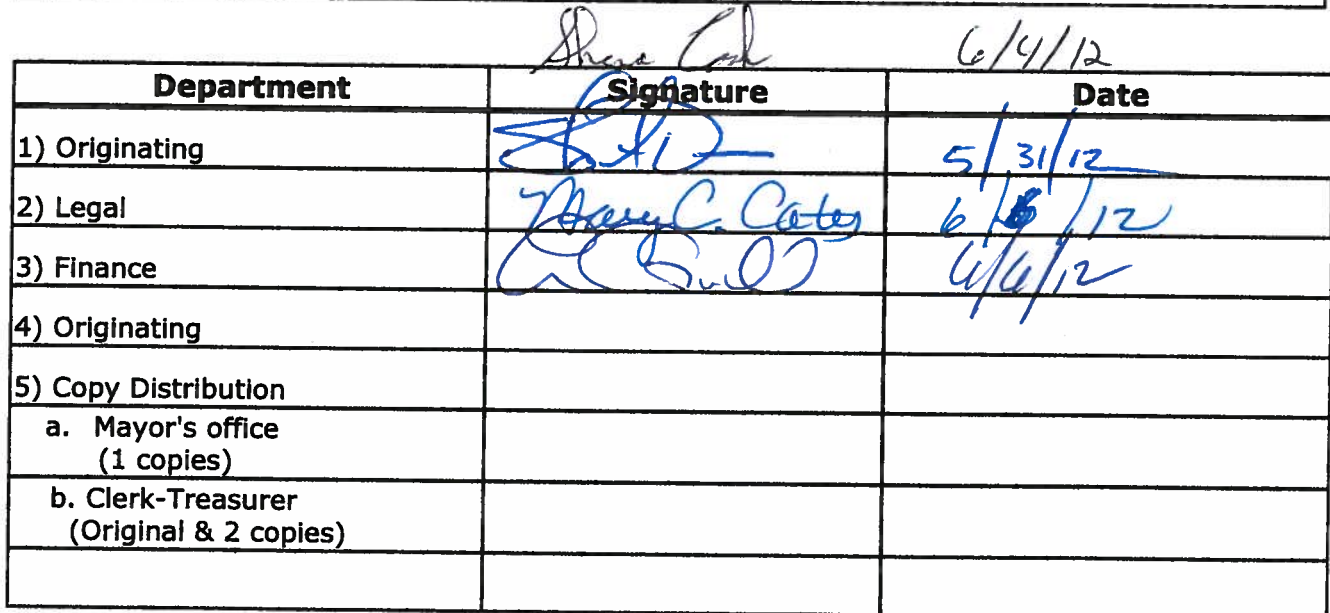 Cash 6/4/12
Department Signature Date
1) Originating 5/31/12
2) Legal Mary C. Cates 6/6/12
3) Finance 6/6/12
4) Originating
5) Copy Distribution
a. Mayor's office
(1 copies)
b. Clerk-Treasurer
(Original & 2 copies)